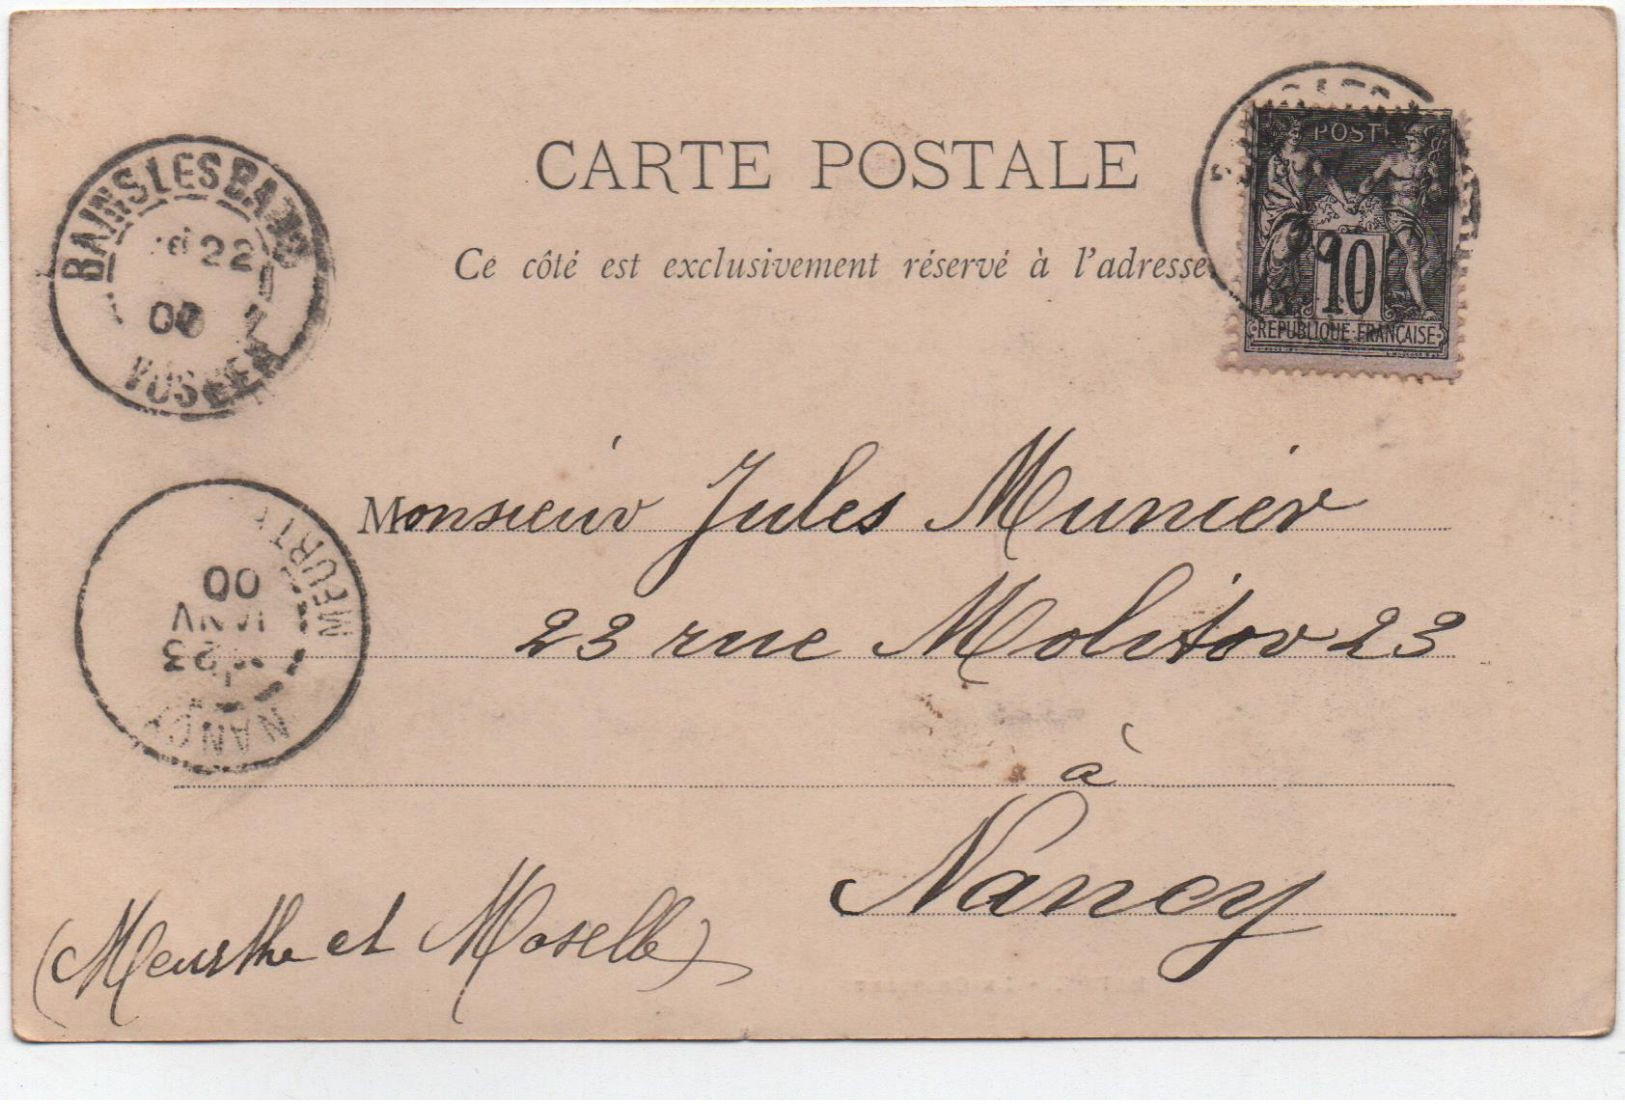 CARTE POSTALE
Ce côté est exclusivement réservé à l'adresse
POST
10
REPUBLIQUE FRANÇAISE
BAINS LES BAINS
22
00
VOSGES
Monsieur Jules Munier
23 rue Molitor 23
à
Nancy
(Meurthe et Moselle)
NANCY
23
JANV
00
MEURT